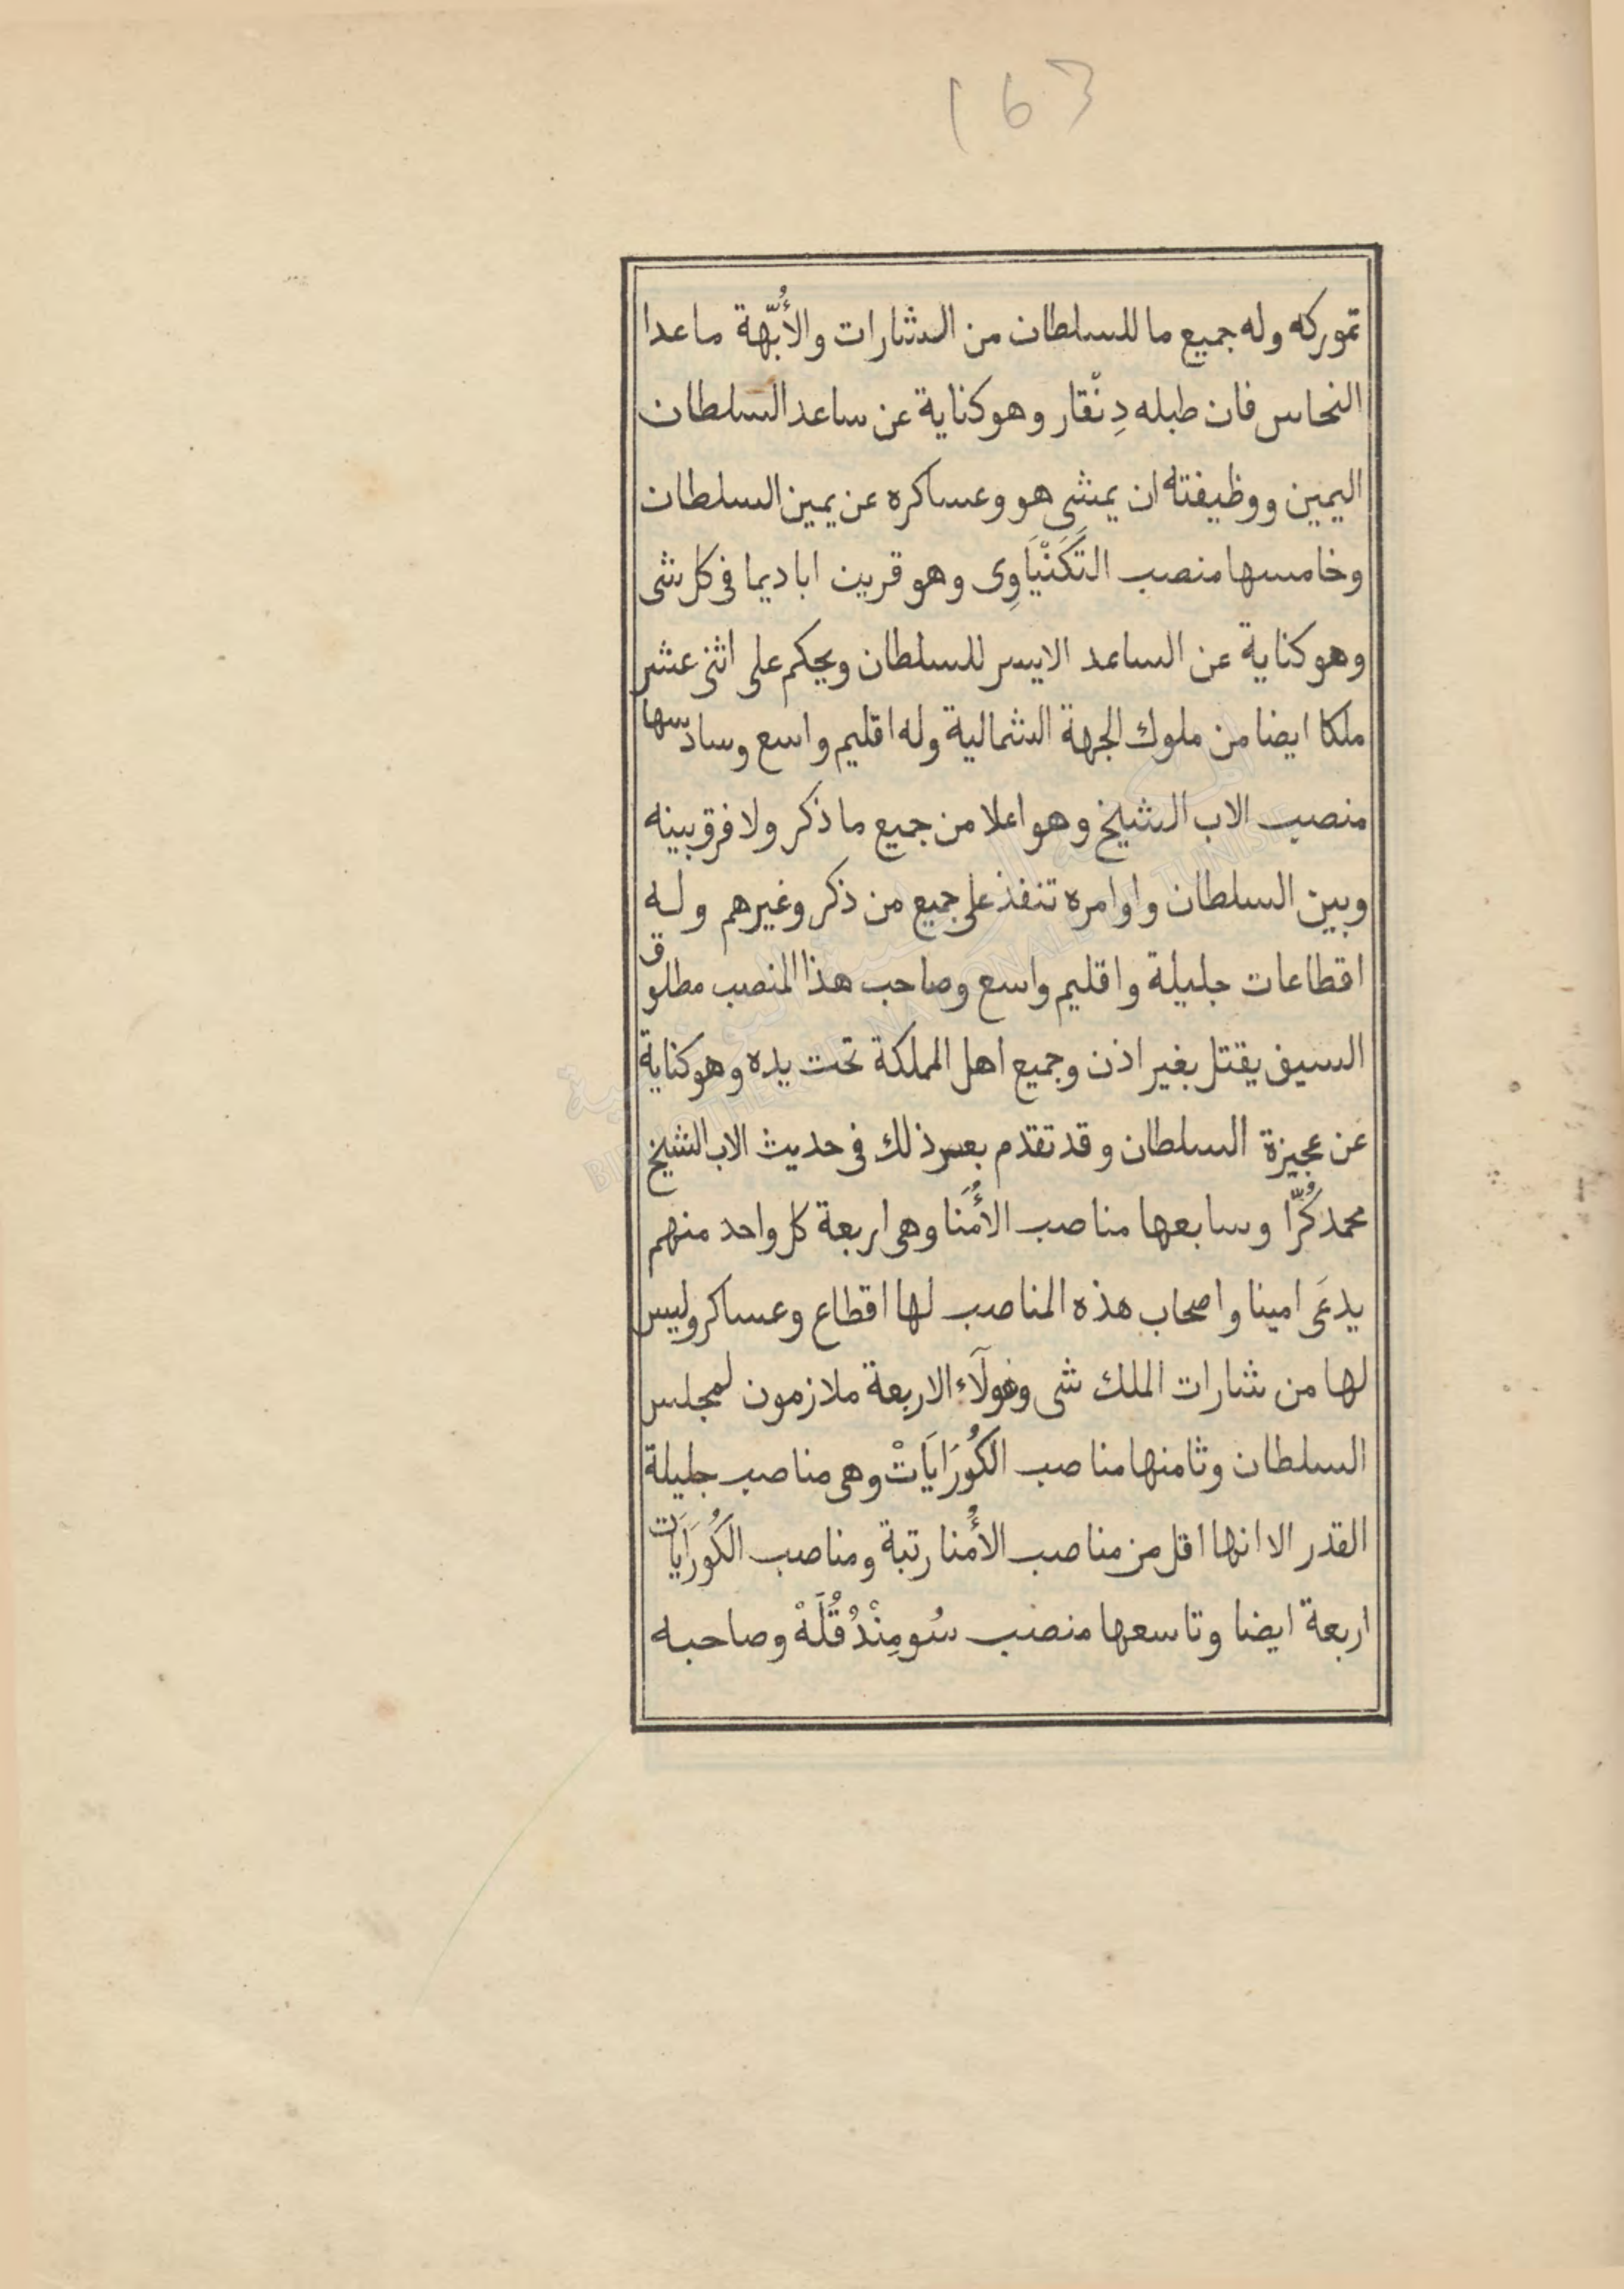 163
تموركه وله جميع ما للسلطان من الشارات والأُبَّهة ماعدا
النحاس فان طبله دِنْقار وهو كناية عن ساعد السلطان
اليمين ووظيفته ان يمشى هو وعساكره عن يمين السلطان
وخامسها منصب التَّكَنْيَاوِى وهو قرين اباديما فى كل شى
وهو كناية عن الساعد الايسر للسلطان ويحكم على اثنى عشر
ملكا ايضا من ملوك الجهة الشمالية وله اقليم واسع وسادسها
منصب الاب الشيخ وهو اعلا من جميع ما ذكر ولا فرق بينه
وبين السلطان واوامره تنفذ على جميع من ذكر وغيرهم وله
اقطاعات جليلة واقليم واسع وصاحب هذا المنصب مطلوق
السيف يقتل بغير اذن وجميع اهل المملكة تحت يده وهو كناية
عن عجيزة السلطان وقد تقدم بعض ذلك فى حديث الاب الشيخ
محمد كُرَّا وسابعها مناصب الأُمَنَا وهى اربعة كل واحد منهم
يدعَى امينا واصحاب هذه المناصب لها اقطاع وعساكر وليس
لها من شارات الملك شى وهولآء الاربعة ملازمون لمجلس
السلطان وثامنها مناصب الكُورَايَاتْ وهى مناصب جليلة
القدر الا انها اقل من مناصب الأُمَنا رتبة ومناصب الكُورَايَات
اربعة ايضا وتاسعها منصب سُومِنْدُقْلَهْ وصاحبه
BIBLIOTHEQUE NATIONALE DE TUNISIE